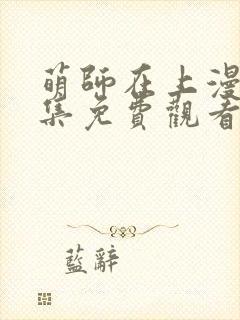 萌師在上漫
集免費觀看
藍辭